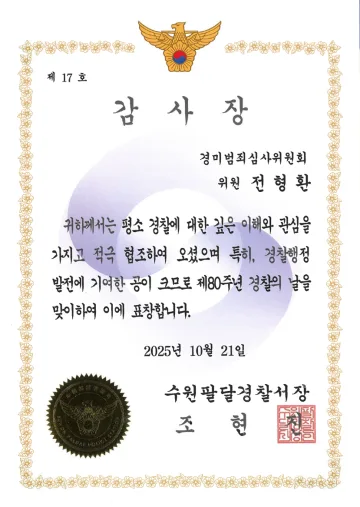 제 17 호
감 사 장
경미범죄심사위원회
위원 전 형 환
귀하께서는 평소 경찰에 대한 깊은 이해와 관심을
가지고 적극 협조하여 오셨으며 특히, 경찰행정
발전에 기여한 공이 크므로 제80주년 경찰의 날을
맞이하여 이에 표창합니다.
2025년 10월 21일
수원팔달경찰서장
조 현 진